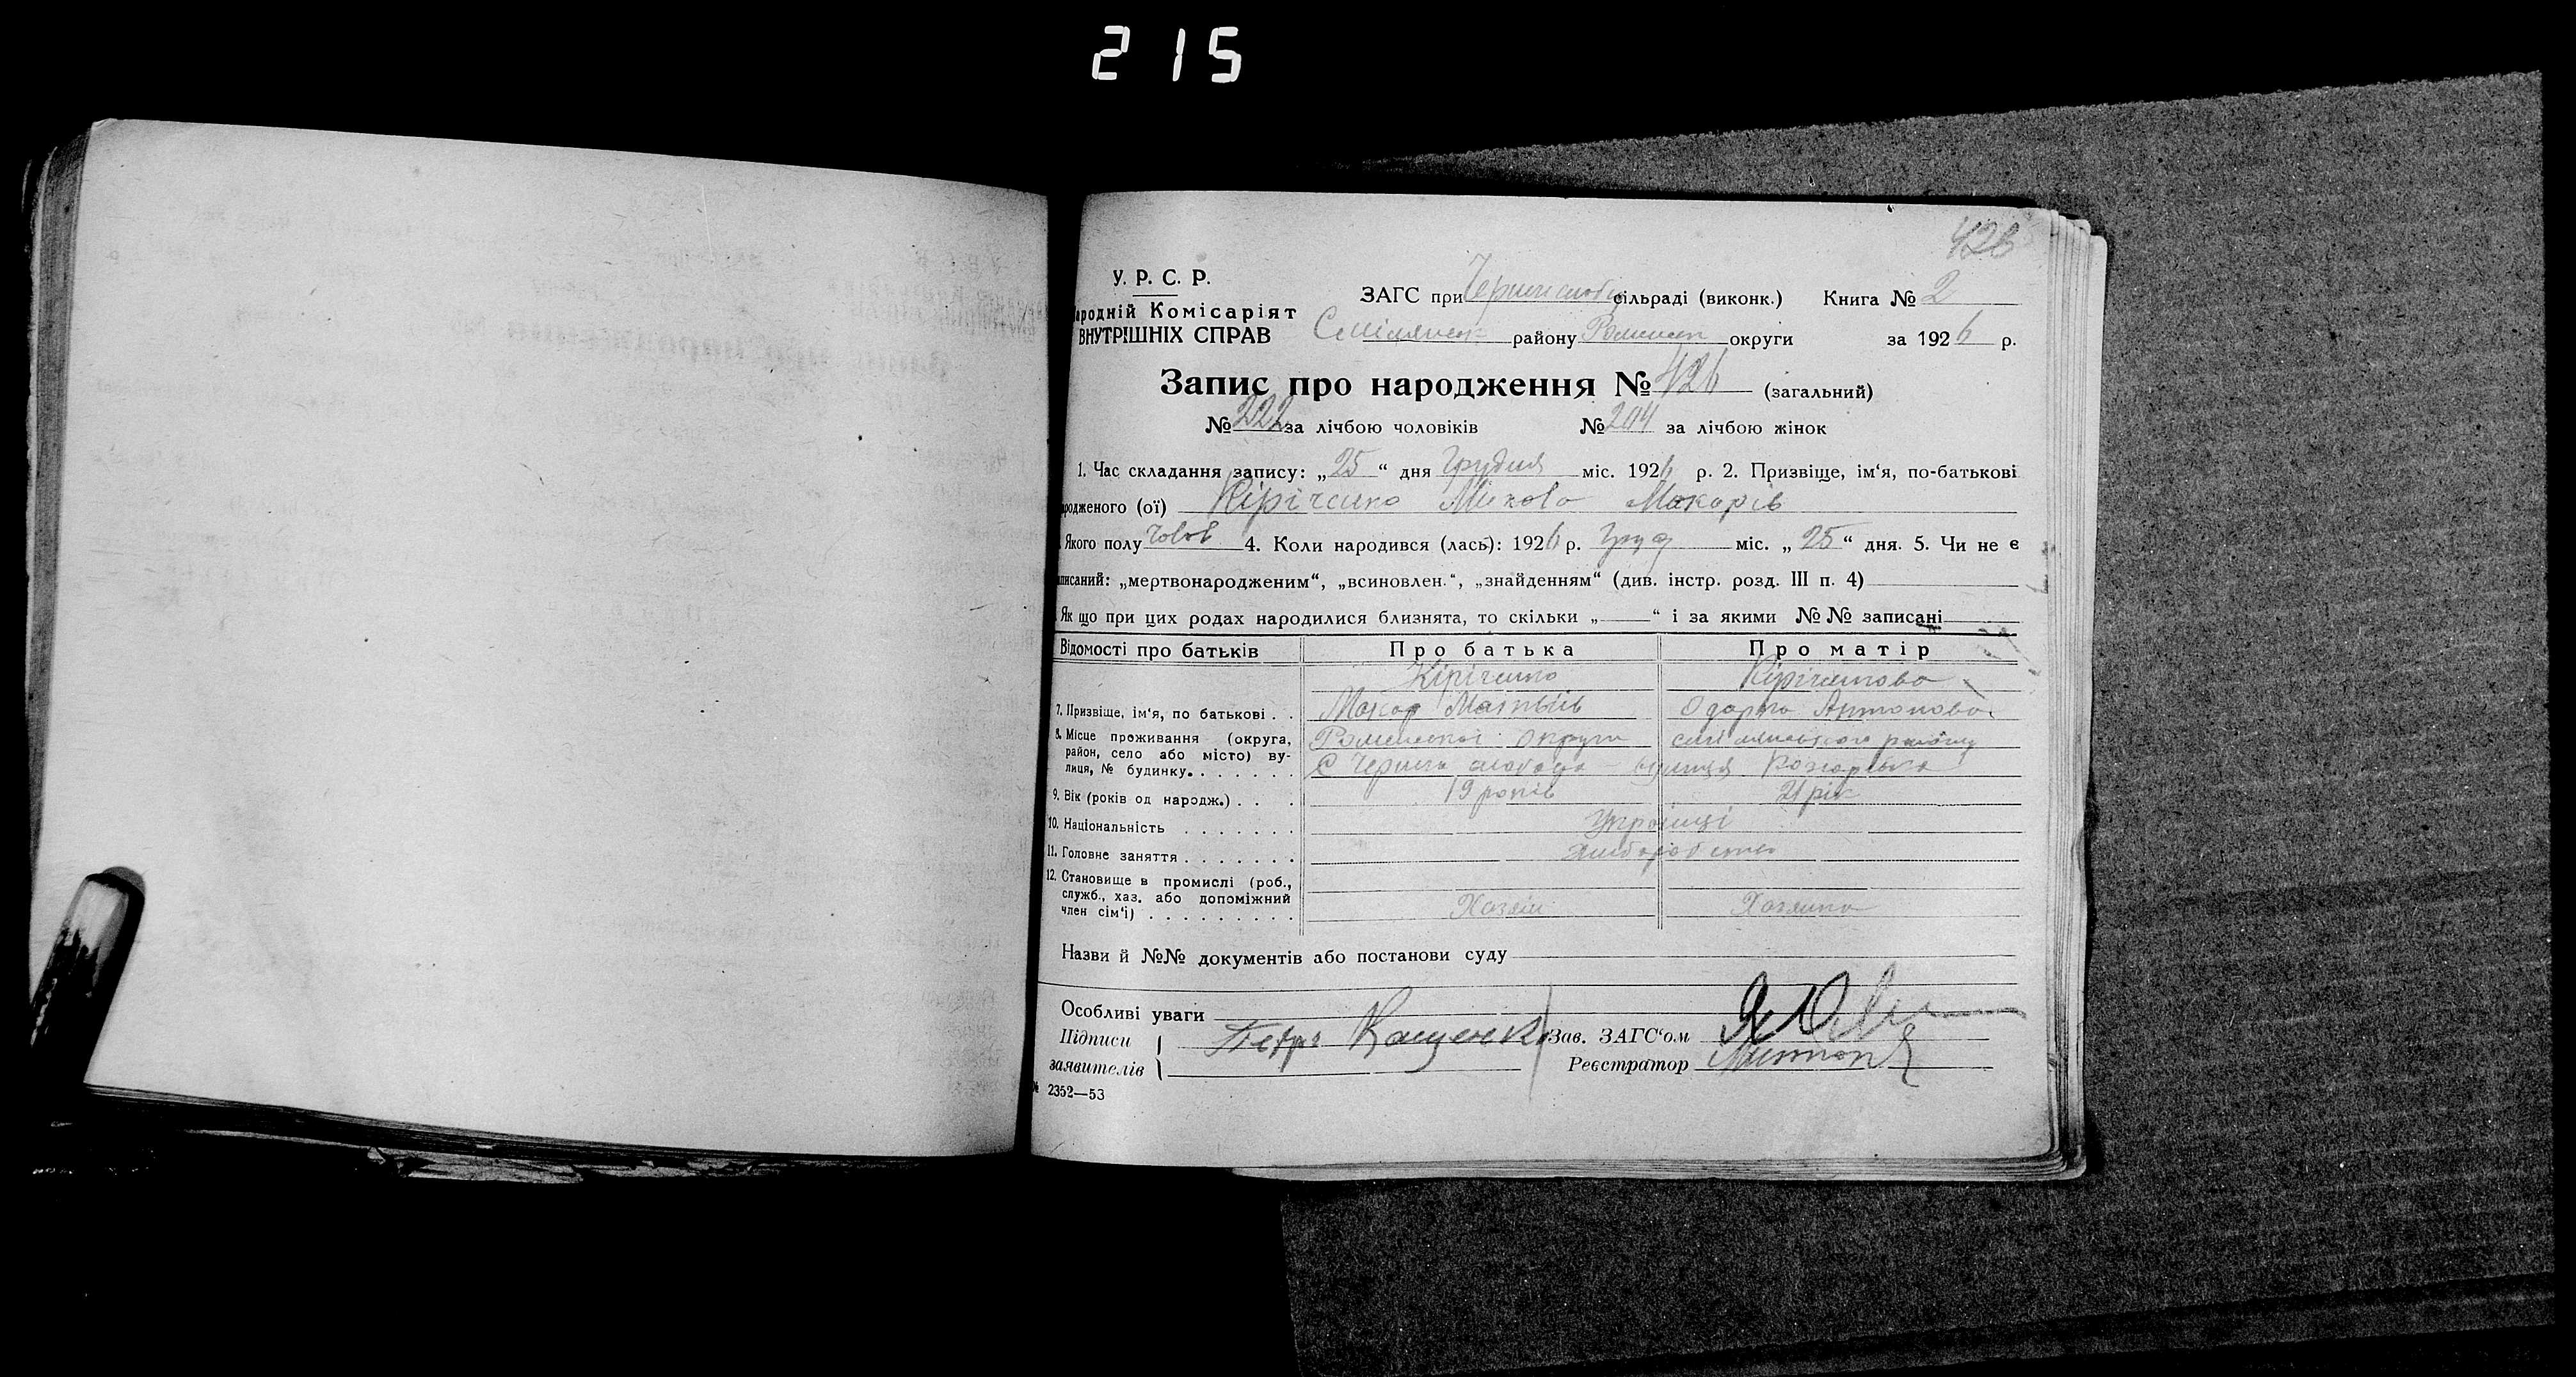 215
426
У. Р. С. Р.
ародній Комісаріят
ВНУТРІШНІХ СПРАВ
ЗАГС при сільраді (виконк.) Книга № 2
району Роменск округи за 1926 р.
Запис про народження № 426 (загальний)
№ 222 за лічбою чоловіків № 204 за лічбою жінок
1. Час складання запису: „25“ дня Грудня міс. 1926 р. 2. Призвіще, ім‘я, по-батькові
родженого (ої) Кірічєнко Микола Макарів
Якого полу Чолов 4. Коли народився (лась): 1926 р. Груд міс. „25“ дня. 5. Чи не є
писаний: „мертвонародженим“, „всиновлен.“, „знайденням“ (див. інстр. розд. III п. 4)
Як що при цих родах народилися близнята, то скільки „ “ і за якими №№ записані
Відомості про батьків Про батька Про матір
Кірічєнко Кірічєнкова
7. Призвіще, ім‘я, по батькові . . Макар Матвіїв Одарка Антонова
8. Місце проживання (округа, район, село або місто) вулиця, № будинку. . . . . . . Роменської округи района
с Черніча слобода вулиця
9. Вік (років од народж.) . . . 19 років 21 рік
10. Національність . . . . . . . Українці
11. Головне заняття . . . . . . . Хліборобство
12. Становище в промислі (роб.,
служб., хаз. або допоміжний
член сім‘ї) . . . . . . . . . Хазяїн Хазяйка
Назви й №№ документів або постанови суду
Особливі уваги
Підписи Петро Кащенко Зав. ЗАГС‘ом
заявителів Реєстратор
№ 2352—53